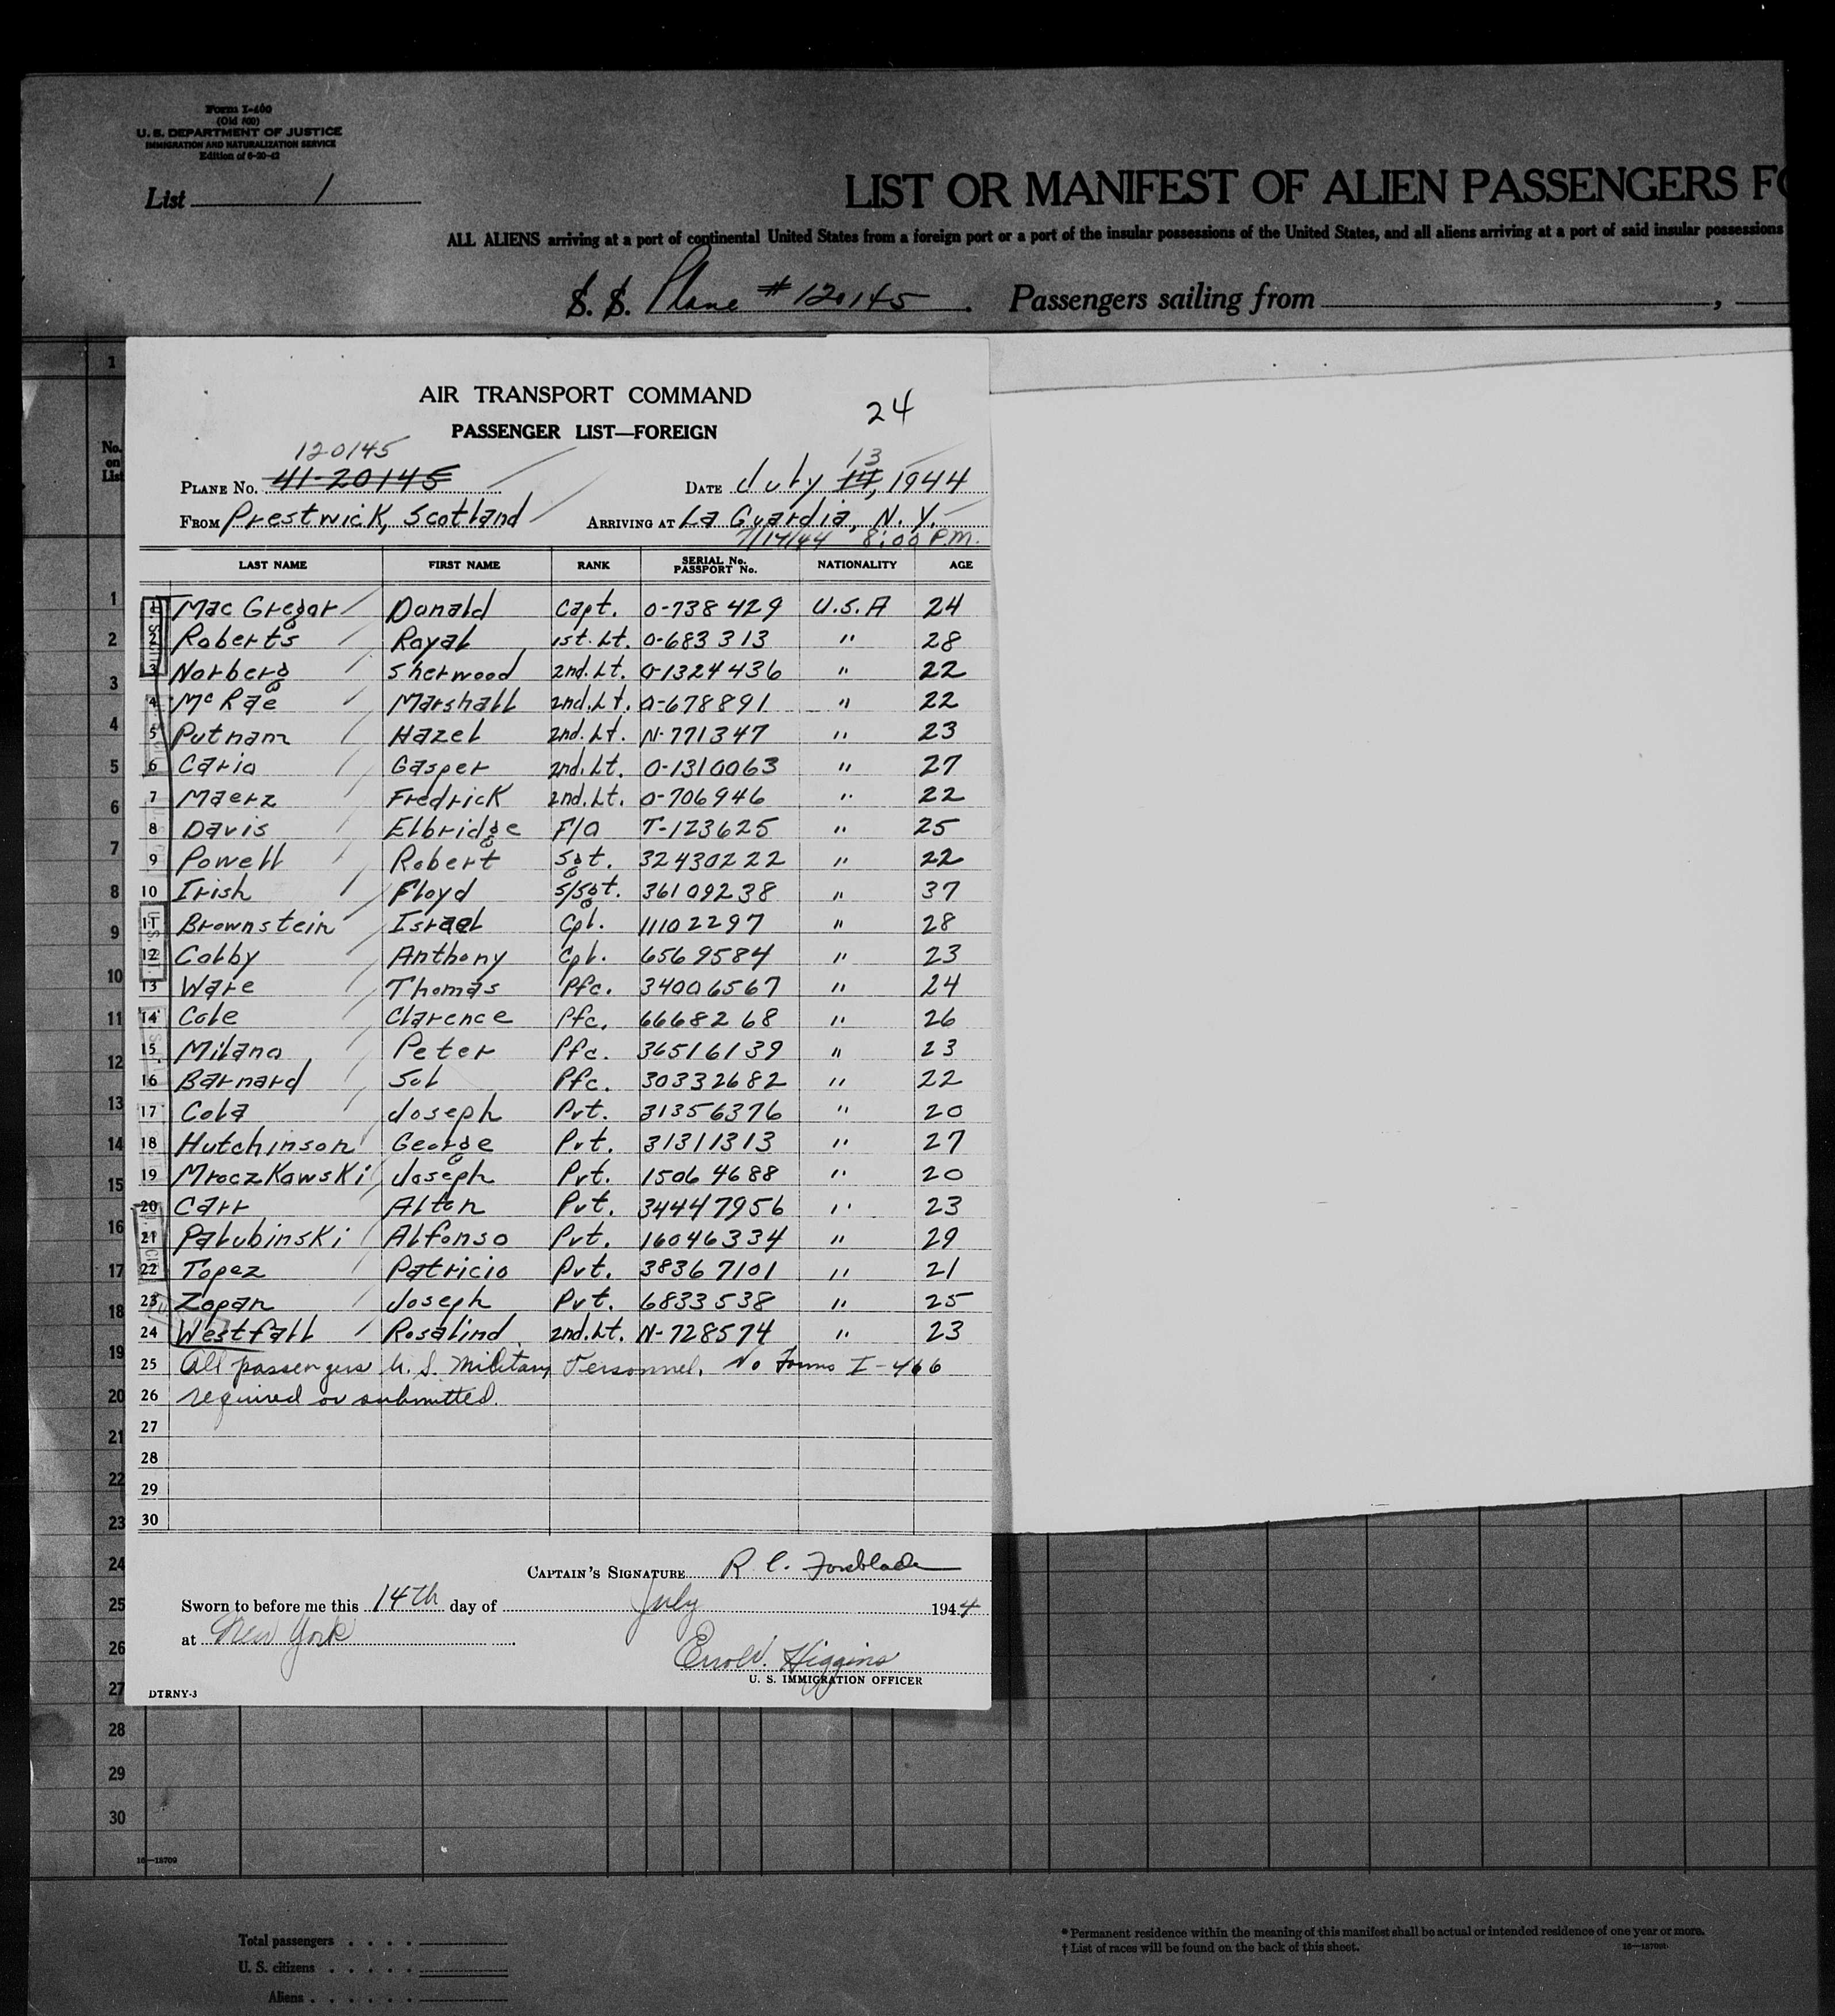 Form I-400
(Old 500)
U. S. DEPARTMENT OF JUSTICE
IMMIGRATION AND NATURALIZATION SERVICE
Edition of 6-20-42
List 1
LIST OR MANIFEST OF ALIEN PASSENGERS
ALL ALIENS arriving at a port of continental United States from a foreign port or a port of the insular possessions of the United States, and all aliens arriving at a port of said insular possessions
S. S. Plane #120145. Passengers sailing from ,
AIR TRANSPORT COMMAND
24
PASSENGER LIST—FOREIGN
120145 13
PLANE No. 41-20145 DATE July 14, 1944
FROM Prestwick, Scotland ARRIVING AT La Guardia, N. Y.
7/14/44 8:00 P.M.
LAST NAME FIRST NAME RANK SERIAL No. PASSPORT No. NATIONALITY AGE
1 Mac Gregor Donald Capt. O-738429 U.S.A 24
2 Roberts Royal 1st. Lt. O-683313 " 28
3 Norberg Sherwood 2nd. Lt. O-1324436 " 22
4 McRae Marshall 2nd. Lt. O-678891 " 22
5 Putnam Hazel 2nd. Lt. N-771347 " 23
6 Cario Gasper 2nd. Lt. O-1310063 " 27
7 Maerz Fredrick 2nd. Lt. O-706946 " 22
8 Davis Elbridge F/O T-123625 " 25
9 Powell Robert Sgt. 32430222 " 22
10 Irish Floyd S/Sgt. 36109238 " 37
11 Brownstein Israel Cpl. 11102297 " 28
12 Colby Anthony Cpl. 6569584 " 23
13 Ware Thomas Pfc. 34006567 " 24
14 Cole Clarence Pfc. 6668268 " 26
15 Milano Peter Pfc. 36516139 " 23
16 Barnard Sol Pfc. 30332682 " 22
17 Cola Joseph Pvt. 31356376 " 20
18 Hutchinson George Pvt. 31311313 " 27
19 Mroczkowski Joseph Pvt. 15064688 " 20
20 Carr Alton Pvt. 34447956 " 23
21 Palubinski Alfonso Pvt. 16046334 " 29
22 Topez Patricio Pvt. 38367101 " 21
23 Zopan Joseph Pvt. 6833538 " 25
24 Westfall Rosalind 2nd. Lt. N-728574 " 23
25 All passengers U. S. Military Personnel. No Forms I-466
26 required or submitted.
27
28
29
30
CAPTAIN'S SIGNATURE R C.
Sworn to before me this 14th day of July 1944
at New York
Higgins
U. S. IMMIGRATION OFFICER
DTRNY-3
No. on List
1
2
3
4
5
6
7
8
9
10
11
12
13
14
15
16
17
18
19
20
21
22
23
24
25
26
27
28
29
30
16—18709
Total passengers . . . .
U. S. citizens . . . . .
Aliens . . . . . .
* Permanent residence within the meaning of this manifest shall be actual or intended residence of one year or more.
† List of races will be found on the back of this sheet.